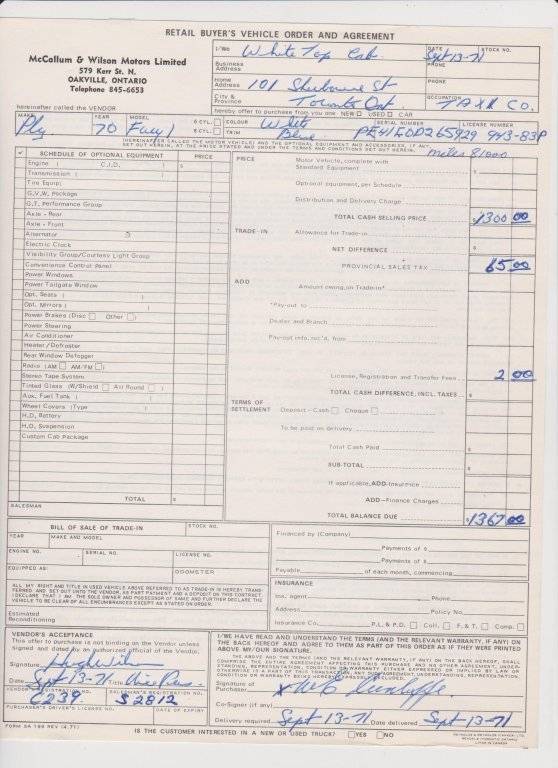 RETAIL BUYER'S VEHICLE ORDER AND AGREEMENT
McCallum & Wilson Motors Limited
579 Kerr St. N.
OAKVILLE, ONTARIO
Telephone 845-6653
hereinafter called the VENDOR
I/We White Top Cab DATE Sept 13-71 STOCK NO.
Business Address PHONE
Home Address 101 Sherbourne St PHONE
City & Province Toronto Ont OCCUPATION TAXI CO.
hereby offer to purchase from you one NEW USED CAR
MAKE Ply YEAR 70 MODEL Fury 1 6 CYL. 8 CYL. COLOUR White TRIM Blue SERIAL NUMBER PE41E0D265929 LICENSE NUMBER 943-83P
(HEREINAFTER CALLED THE MOTOR VEHICLE) AND THE OPTIONAL EQUIPMENT AND ACCESSORIES, IF ANY, SET OUT HEREIN, AT THE PRICE STATED AND UNDER THE TERMS AND CONDITIONS SET OUT HEREIN.
miles 81000
SCHEDULE OF OPTIONAL EQUIPMENT PRICE
Engine ( C.I.D. ) $
Transmission ( )
Tire Equip:
G.V.W. Package
G.T. Performance Group
Axle - Rear
Axle - Front
Alternator
Electric Clock
Visibility Group/Courtesy Light Group
Convenience Control Panel
Power Windows
Power Tailgate Window
Opt. Seats ( )
Opt. Mirrors ( )
Power Brakes (Disc Other )
Power Steering
Air Conditioner
Heater/Defroster
Rear Window Defogger
Radio (AM AM/FM )
Stereo Tape System
Tinted Glass (W/Shield All Round )
Aux. Fuel Tank ( )
Wheel Covers (Type )
H.D. Battery
H.D. Suspension
Custom Cab Package
TOTAL $
SALESMAN
PRICE Motor Vehicle, complete with
Standard Equipment $
Optional equipment, per Schedule
Distribution and Delivery Charge
TOTAL CASH SELLING PRICE $1300 00
TRADE-IN Allowance for Trade-in $
NET DIFFERENCE $
PROVINCIAL SALES TAX 65 00
ADD Amount owing on Trade-in*
*Pay-out to
Dealer and Branch
Pay-out info. rec'd. from
License, Registration and Transfer Fees 2 00
TOTAL CASH DIFFERENCE, INCL. TAXES $
TERMS OF SETTLEMENT Deposit - Cash Cheque $
To be paid on delivery
Total Cash Paid $
SUB-TOTAL $
If applicable, ADD-Insurance
ADD-Finance Charges
TOTAL BALANCE DUE $1367 00
BILL OF SALE OF TRADE-IN STOCK NO.
YEAR MAKE AND MODEL
ENGINE NO. SERIAL NO. LICENSE NO.
EQUIPPED AS: ODOMETER
ALL MY RIGHT AND TITLE IN USED VEHICLE ABOVE REFERRED TO AS TRADE-IN IS HEREBY TRANSFERRED AND SET OUT UNTO THE VENDOR, AS PART PAYMENT AND A DEPOSIT ON THIS CONTRACT. I DECLARE THAT I AM THE SOLE OWNER AND POSSESSOR OF SAME AND FURTHER DECLARE THE VEHICLE TO BE CLEAR OF ALL ENCUMBRANCES EXCEPT AS STATED ON ORDER.
Estimated
Reconditioning
Financed by (Company)
Payments of $
Payments of $
Payable of each month, commencing
INSURANCE
Ins. agent Phone
Address Policy No.
Insurance Co. P.L. & P.D. Coll. F. & T. Comp.
VENDOR'S ACCEPTANCE
This offer to purchase is not binding on the Vendor unless
Signed and dated by an authorized official of the Vendor.
Signature Hugh Wilson
Date Sept 13-71 Title Vice Pres
VENDOR'S REGISTRATION NO. C239 SALESMAN'S REGISTRATION NO. S 2812
PURCHASER'S DRIVER'S LICENSE NO. DATE OF EXPIRY
I/WE HAVE READ AND UNDERSTAND THE TERMS (AND THE RELEVANT WARRANTY, IF ANY) ON
THE BACK HEREOF AND AGREE TO THEM AS PART OF THIS ORDER AS IF THEY WERE PRINTED
ABOVE MY/OUR SIGNATURE.
Signature of Purchaser x
Co-Signer (if any)
Delivery required Sept 13-71 Date delivered Sept 13-71
FORM DA 188 REV (4.71)
IS THE CUSTOMER INTERESTED IN A NEW OR USED TRUCK? YES NO